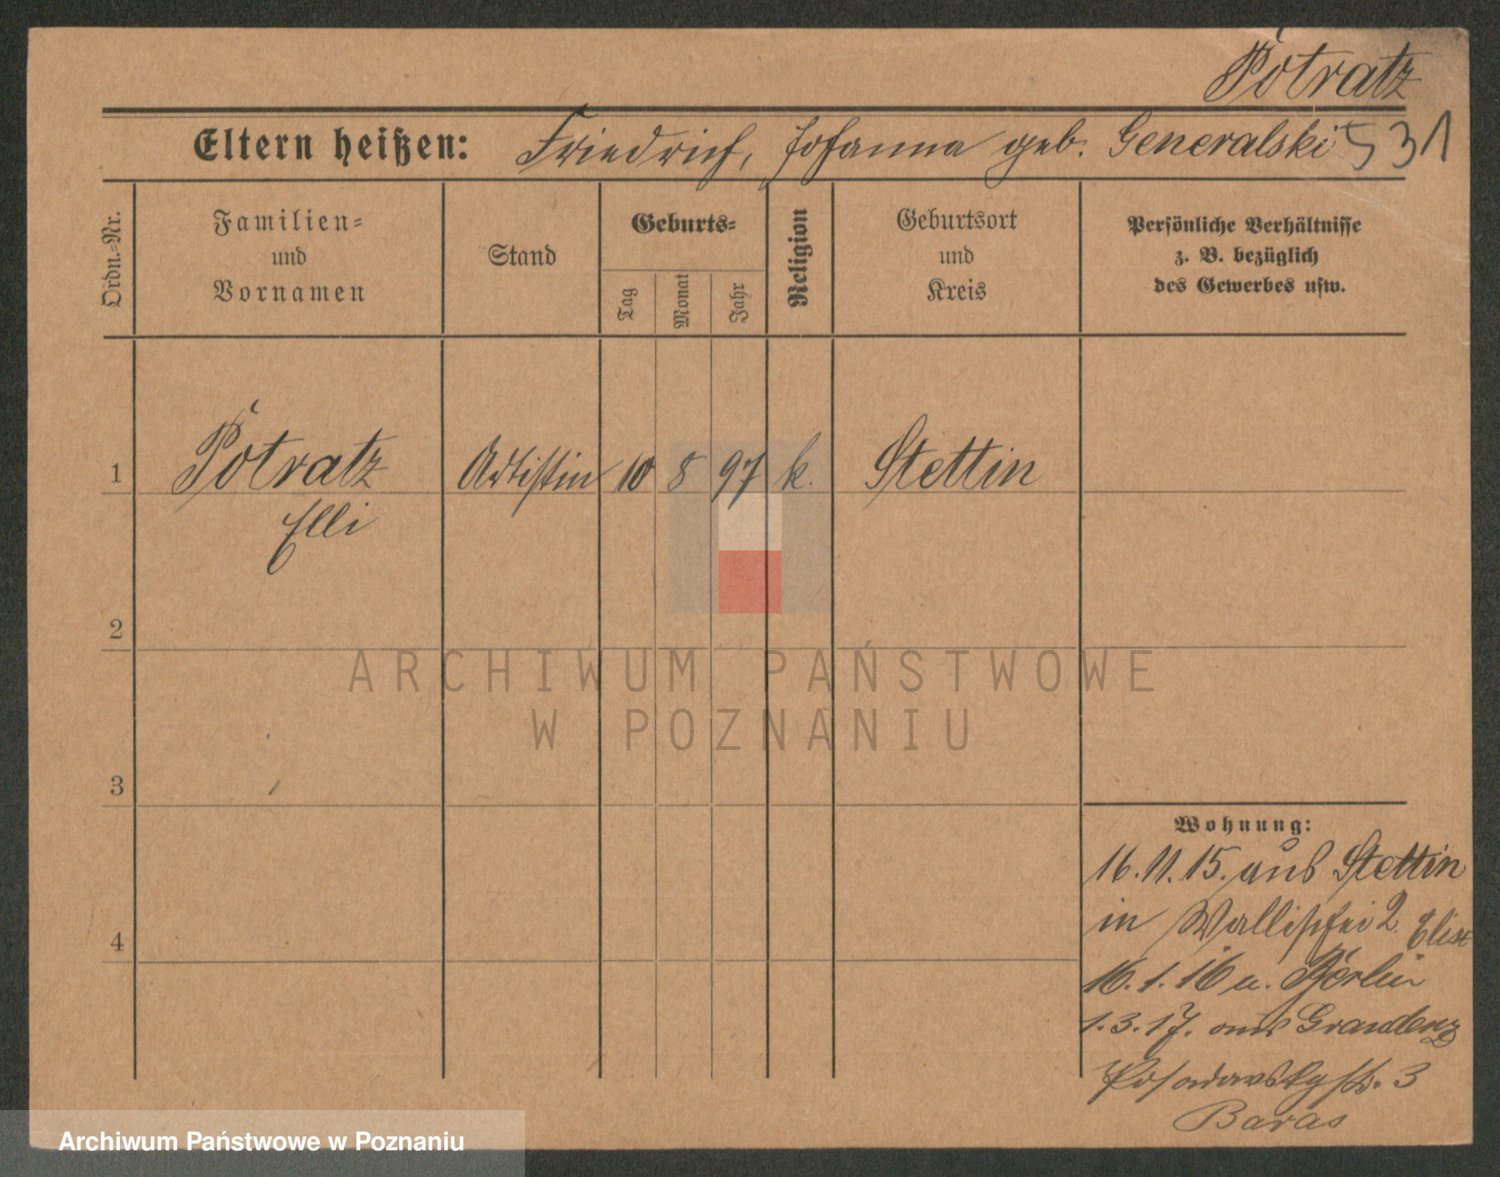 Potratz
Eltern heißen: Friedrich, Johanna geb. Generalski 531
Ordn.-Nr.
Familien-
und
Vornamen
Stand
Geburts-
Tag
Monat
Jahr
Religion
Geburtsort
und
Kreis
Persönliche Verhältnisse
z. B. bezüglich
des Gewerbes usw.
1 Potratz Artistin 10 8 97 k. Stettin
Elli
2
3
4
ARCHIWUM PAŃSTWOWE
W POZNANIU
Wohnung:
16.11.15. aus Stettin
in 2. Elise
16.1.16 n. Berlin
1.3.17. aus Graudenz
3
Baras
Archiwum Państwowe w Poznaniu